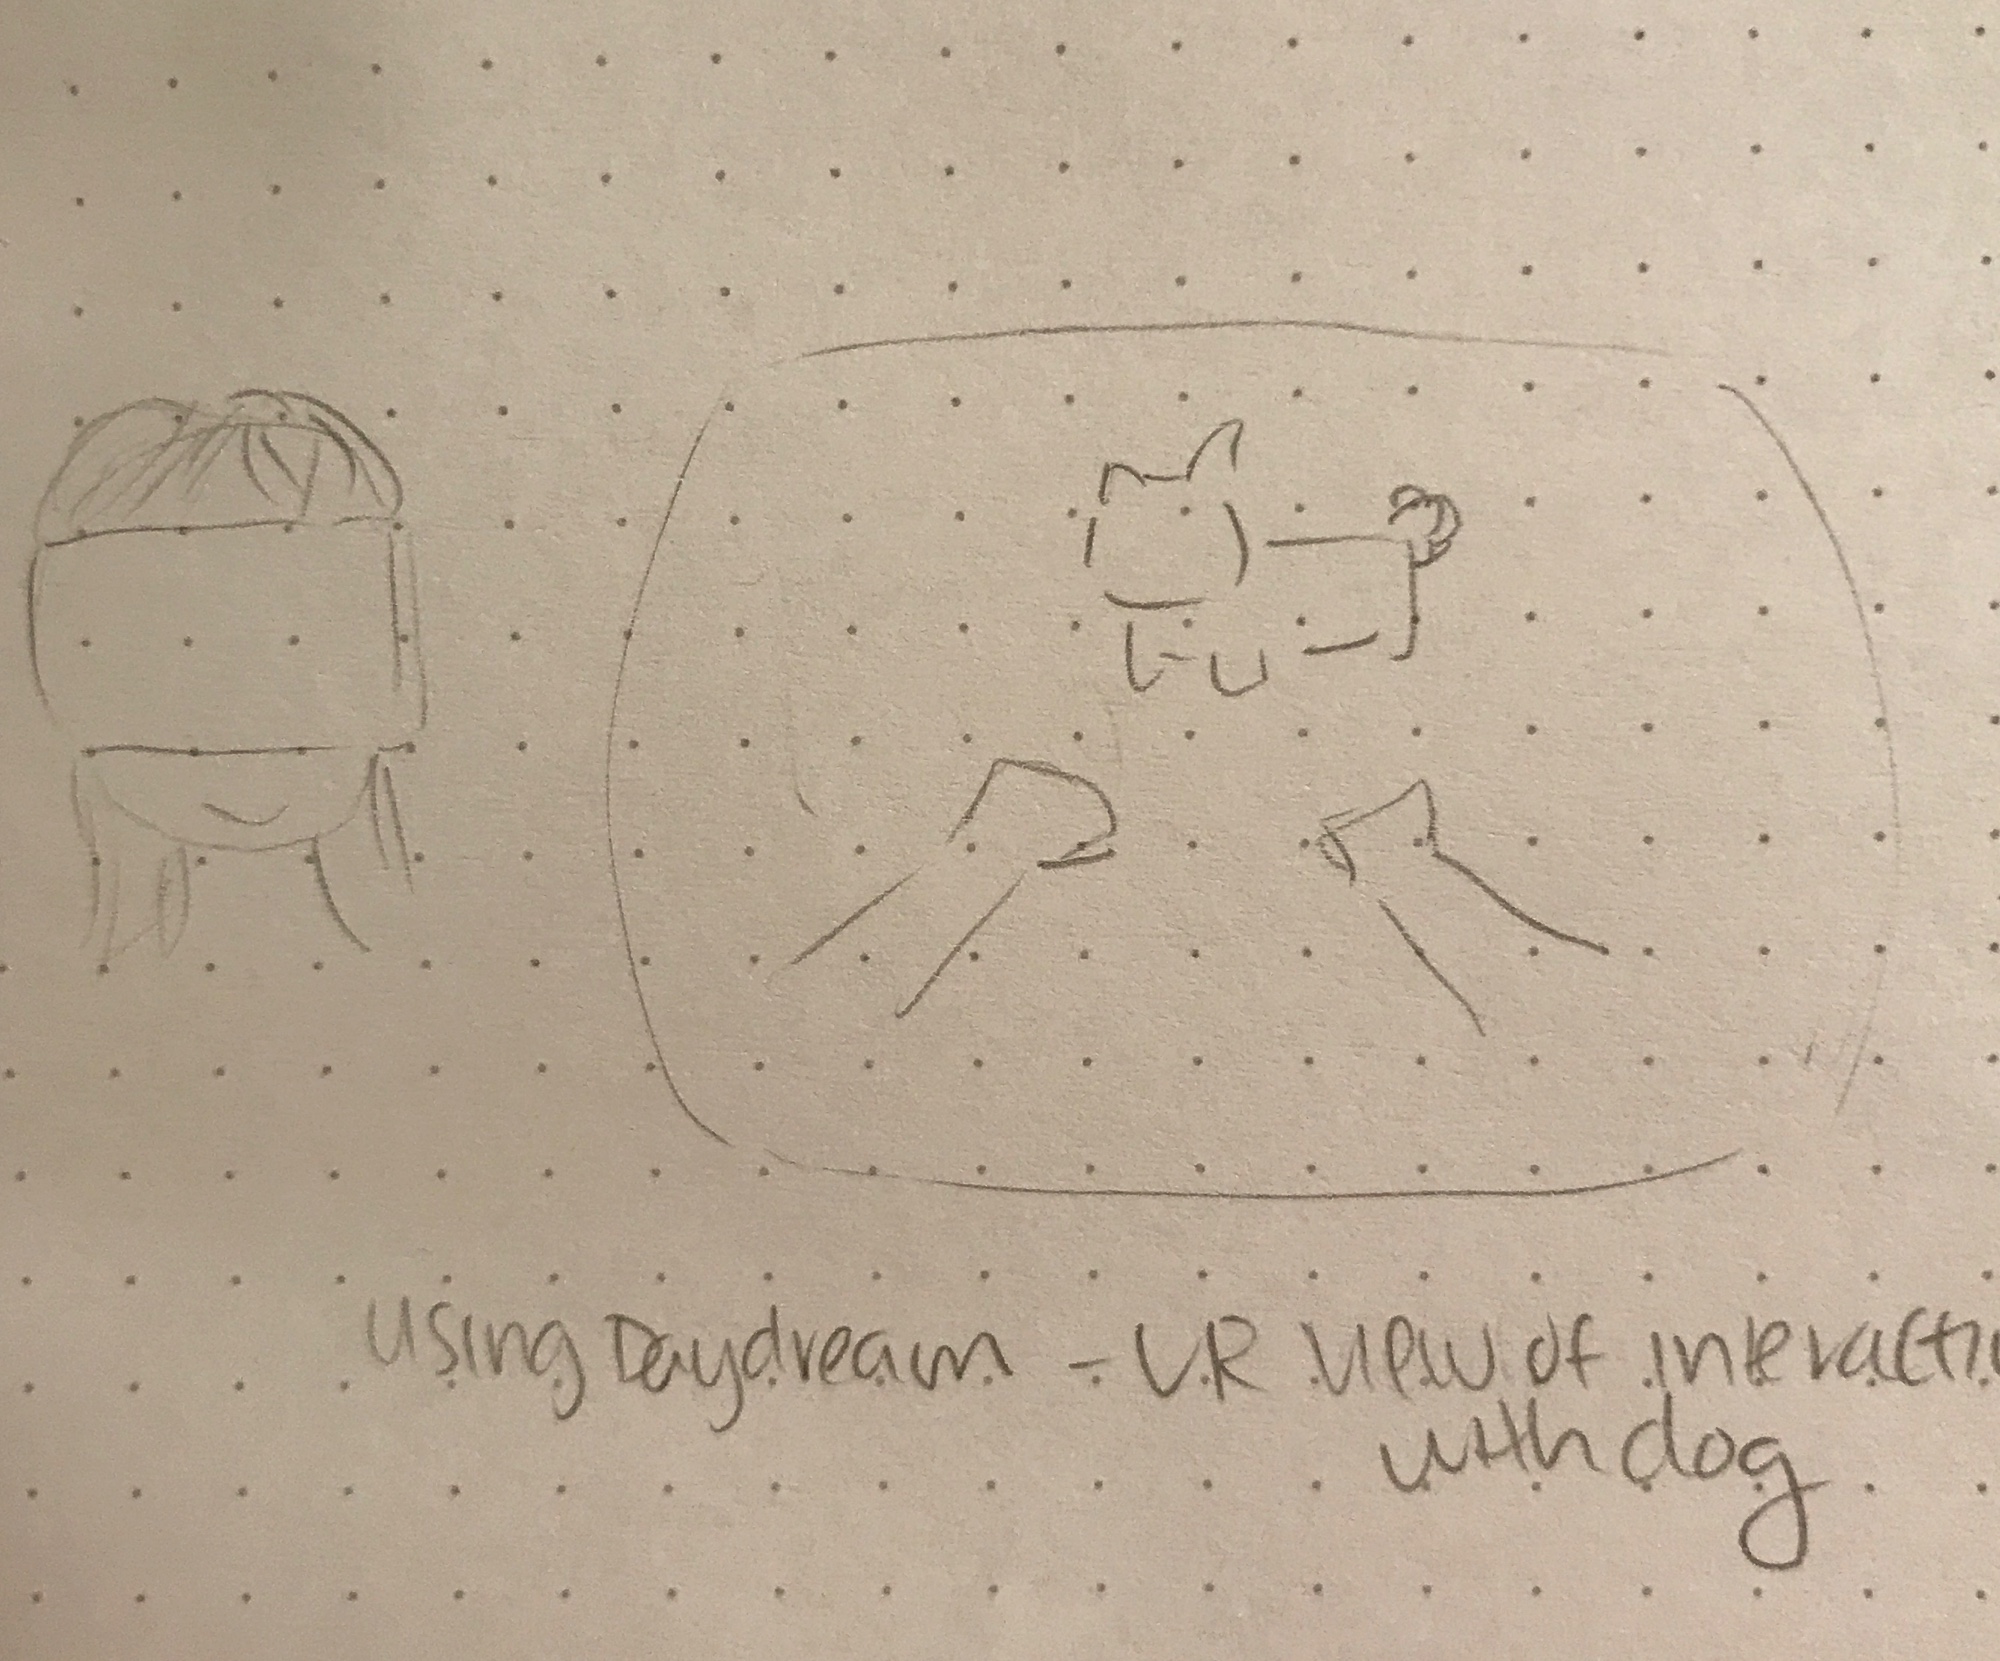 Using Daydream - VR view of interacti
with dog